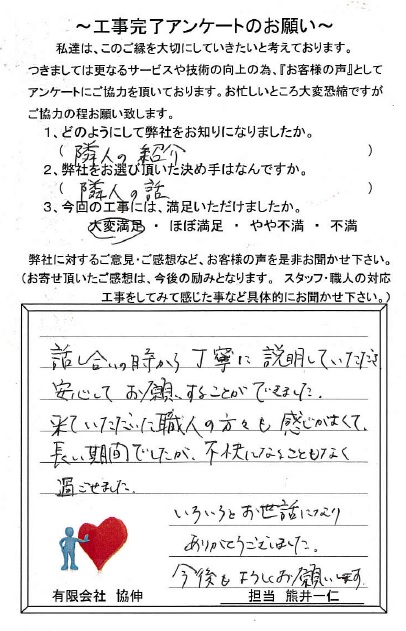 ～工事完了アンケートのお願い～
私達は、このご縁を大切にしていきたいと考えております。
つきましては更なるサービスや技術の向上の為、『お客様の声』として
アンケートにご協力を頂いております。お忙しいところ大変恐縮ですが
ご協力の程お願い致します。
1、どのようにして弊社をお知りになりましたか。
( 隣人の紹介 )
2、弊社をお選び頂いた決め手はなんですか。
( 隣人の話 )
3、今回の工事には、満足いただけましたか。
大変満足 ・ ほぼ満足 ・ やや不満 ・ 不満
弊社に対するご意見・ご感想など、お客様の声を是非お聞かせ下さい。
(お寄せ頂いたご感想は、今後の励みとなります。 スタッフ・職人の対応
工事をしてみて感じた事など具体的にお聞かせ下さい。)
話し合いの時から丁寧に説明していただき
安心してお願いすることができました。
来ていただいた職人の方々も感じがよくて、
長い期間でしたが、不快になることもなく
過ごせました。
いろいろとお世話になり
ありがとうございました。
今後もよろしくお願いします。
有限会社 協伸
担当 熊井一仁